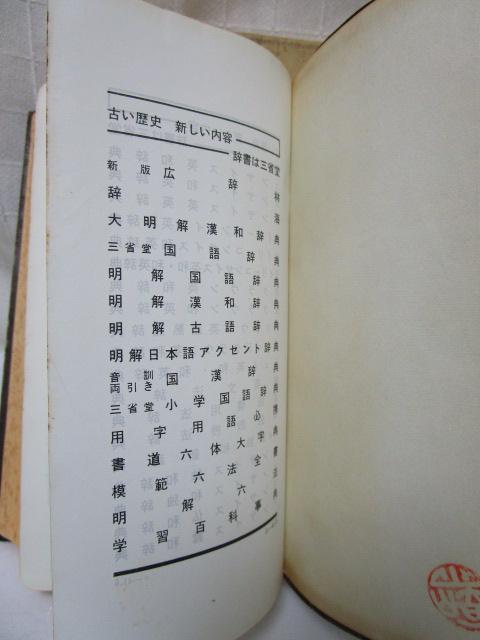 古い歴史 新しい内容
辞書は三省堂
新版広辞林
辞海
大明解漢和辞典
三省堂国語辞典
明解国語辞典
明解漢和辞典
明解古語辞典
明解日本語アクセント辞典
音訓両引き国漢辞典
三省堂小学国語辞典
用字用語必携
書道六体大字典
模範六法全書
明解六法
学習百科事典